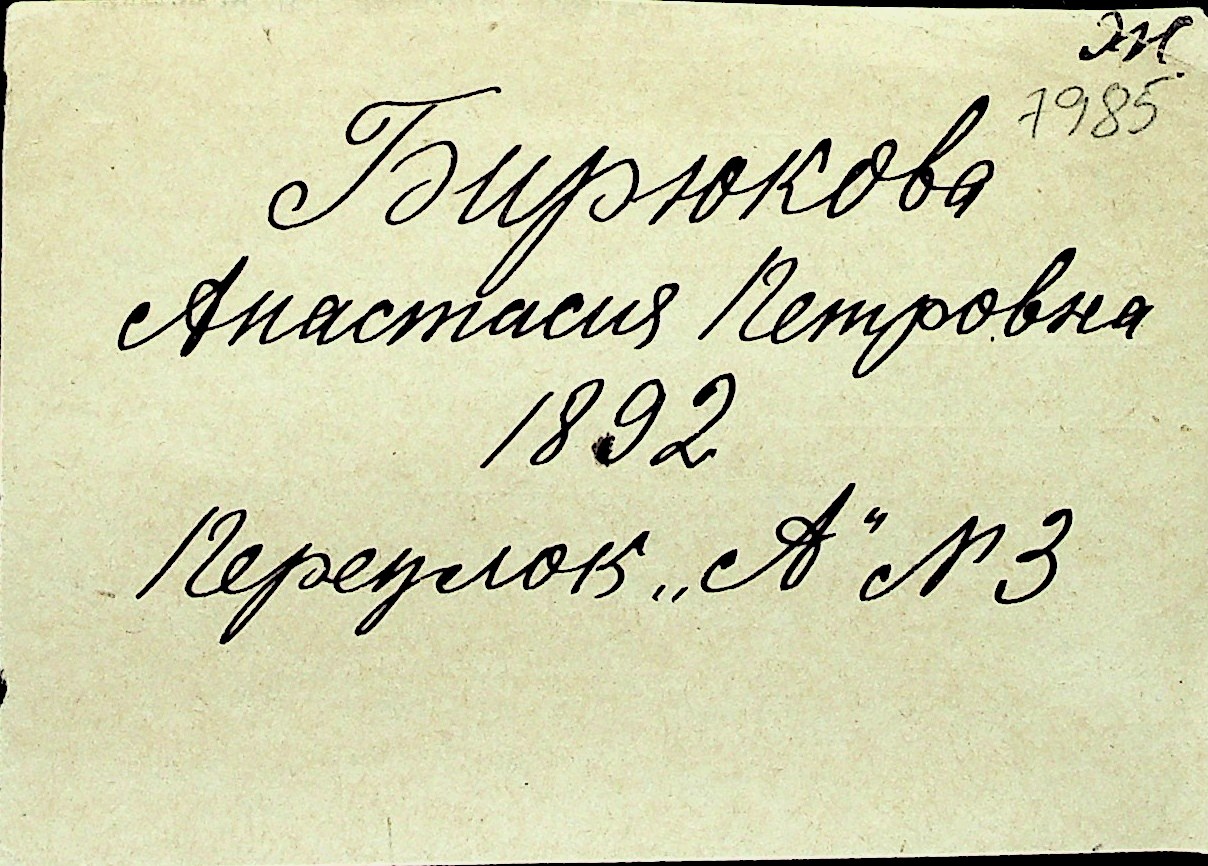 эк.
7985
Бирюкова
Анастасия Петровна
1892
Переулок „А“ № 3